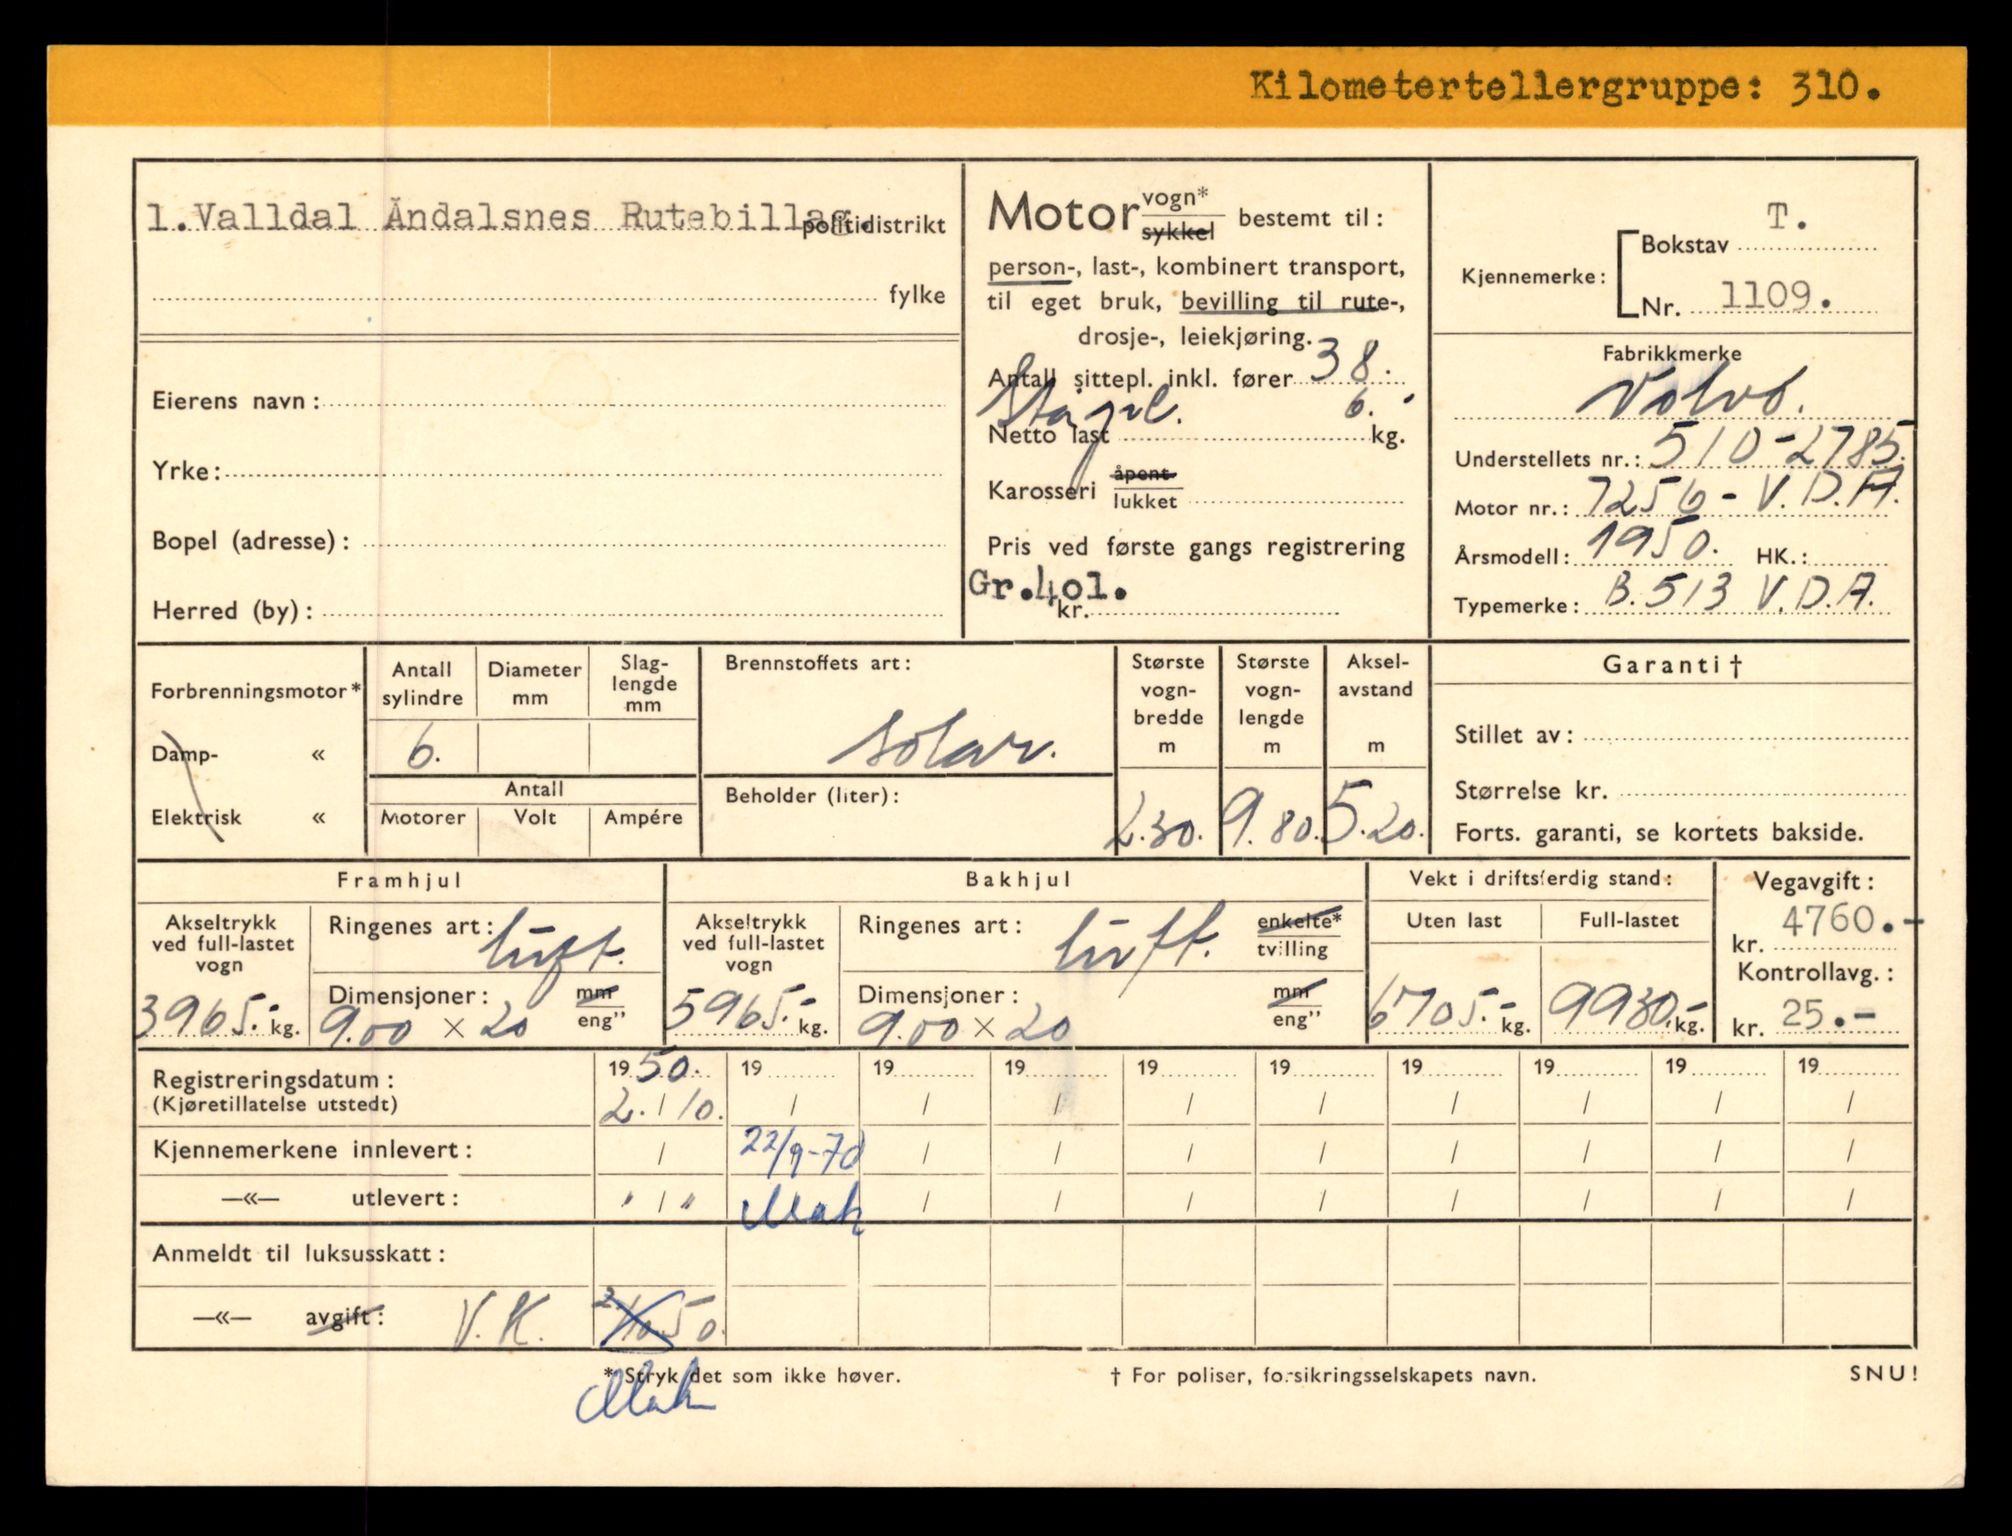 Kilometertellergruppe: 310.
1.Valldal Åndalsnes Rutebillag. politidistrikt
fylke
Eierens navn:
Yrke:
Bopel (adresse):
Herred (by):
Motor vogn* sykkel bestemt til:
person-, last-, kombinert transport,
til eget bruk, bevilling til rute-,
drosje-, leiekjøring.
Antall sittepl. inkl. fører 38.
Ståpl. 6.
Netto last kg.
Karosseri åpent lukket
Pris ved første gangs registrering
Gr.401.
kr.
Kjennemerke: Bokstav T.
Nr. 1109.
Fabrikkmerke
Volvo.
Understellets nr.: 510-2785.
Motor nr.: 7256 - V.D.A.
Årsmodell: 1950. HK.:
Typemerke: B.513 V.D.A.
Forbrenningsmotor*
Damp- «
Elektrisk «
Antall sylindre
Diameter mm
Slag-lengde mm
6.
Antall
Motorer Volt Ampére
Brennstoffets art:
Solar.
Beholder (liter):
Største vogn-bredde m
2.30.
Største vogn-lengde m
9.80.
Aksel-avstand m
5.20.
Garanti†
Stillet av:
Størrelse kr.
Forts. garanti, se kortets bakside.
Framhjul
Akseltrykk ved full-lastet vogn
3965.- kg.
Ringenes art: luft.
Dimensjoner: mm eng''
9.00 × 20
Bakhjul
Akseltrykk ved full-lastet vogn
5965.- kg.
Ringenes art: luft. enkelte* tvilling
Dimensjoner: mm eng''
9.00 × 20
Vekt i driftsferdig stand:
Uten last Full-lastet
6705.- kg. 9930.- kg.
Vegavgift:
kr. 4760.-
Kontrollavg.:
kr. 25.-
Registreringsdatum: 19 50. 19 19 19 19 19 19 19 19 19
(Kjøretillatelse utstedt) 2. / 10. / / / / / / / / /
Kjennemerkene innlevert: / 22/9-70 / / / / / / / /
—«— utlevert: " / " Mah / / / / / / / /
Anmeldt til luksusskatt:
—«— avgift: V.K. 2/10.50.
* Stryk det som ikke høver. † For poliser, forsikringsselskapets navn. SNU!
Mah